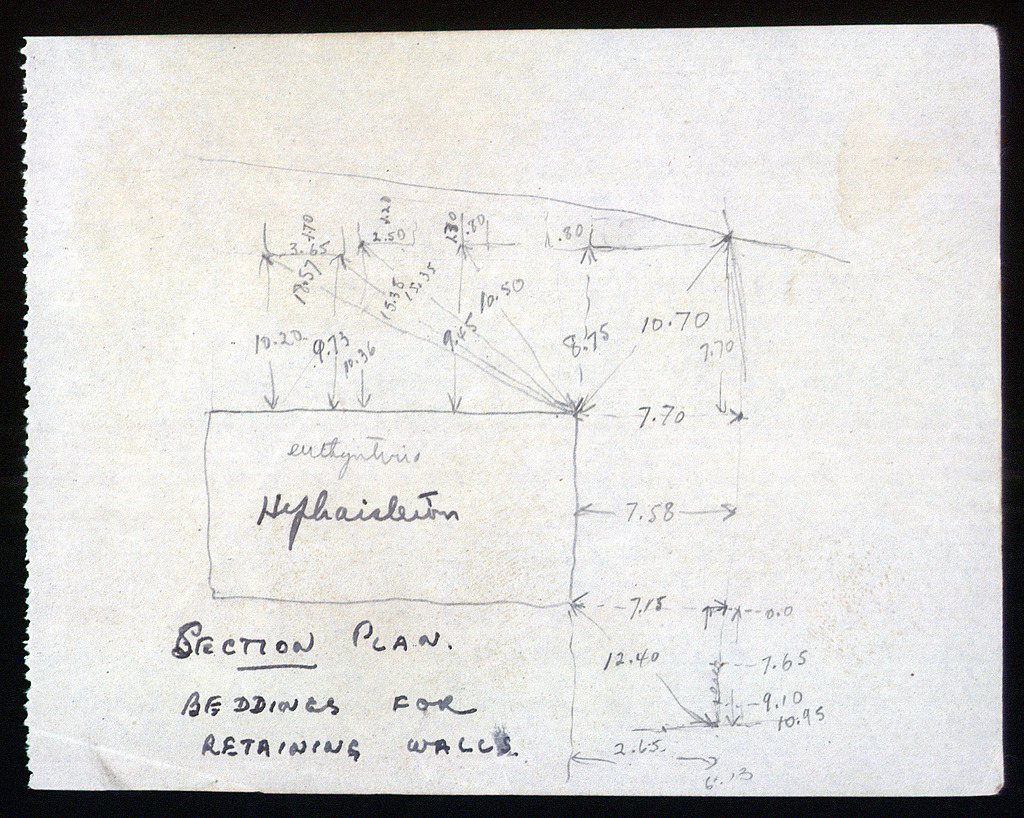 1.70
1.20
3.65
2.50
1.30
.80
1.80
18.57
15.38
15.35
10.50
10.20
9.73
10.36
9.45
8.75
10.70
7.70
7.70
euthynteria
Hephaisteion
7.58
7.15
0.0
SECTION PLAN.
12.40
7.65
BEDDINGS FOR
9.10
10.95
RETAINING WALLS.
2.65
6.13